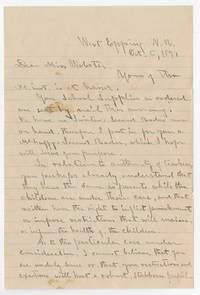 West Epping, N.H.
Oct. 5, 1891
Dear Miss Webster,
Yours of the
inst. is at hand.
Your School Supplies as ordered
are sent by mail this morning.
No hand Second Reader now
on hand, therefore I put in for you a
McGuffey's Second Reader, which I hope
will serve your purpose.
In relation to authority of teachers
you perhaps already understand that
they have the same as parents while the
children are under their care, and that
neither have the right to inflict punishment
or impose restrictions that will
or injure the health of the children.
As to the particular case under
consideration; I cannot believe that you
are unduly severe, or that your restrictions and
will hurt a robust, stubborn pupil